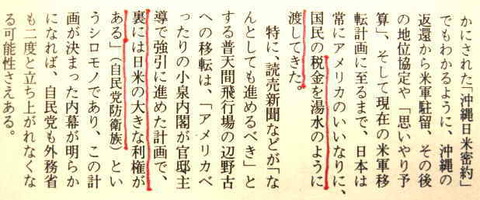 かにされた「沖縄日米密約」
でもわかるように、沖縄の
返還から米軍駐留、その後
の地位協定や「思いやり予
算」、そして現在の米軍移
転計画に至るまで、日本は
常にアメリカのいいなりに、
国民の税金を湯水のように
渡してきた。
特に、読売新聞などが「な
んとしても進めるべき」と
する普天間飛行場の辺野古
への移転は、「アメリカベ
ったりの小泉内閣が官邸主
導で強引に進めた計画で、
裏には日米の大きな利権が
ある」（自民党防衛族）とい
うシロモノであり、この計
画が決まった内幕が明らか
になれば、自民党も外務省
も二度と立ち上がれなくな
る可能性さえある。